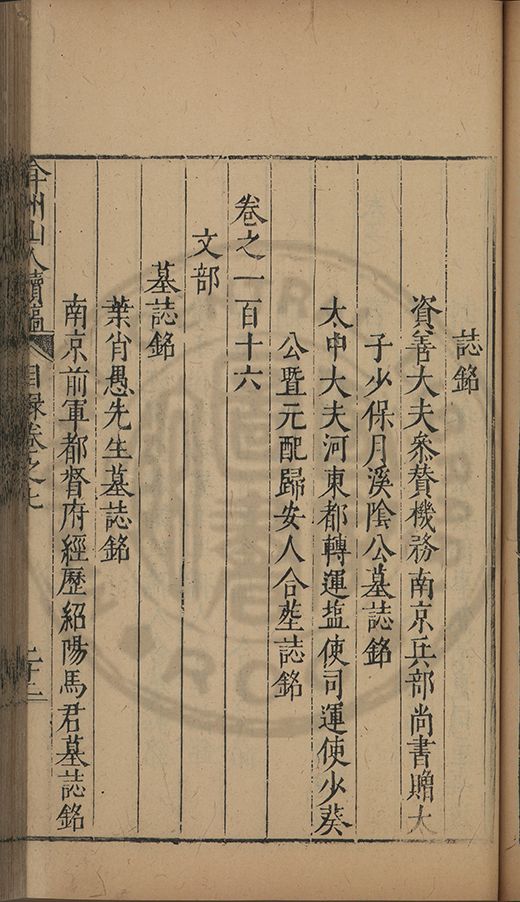 誌銘
資善大夫叅贊機務南京兵部尚書贈太
子少保月溪陰公墓誌銘
太中大夫河東都轉運盐使司運使少葵
公暨元配歸安人合塟誌銘
卷之一百十六
文部
墓誌銘
葉肖愚先生墓誌銘
南京前軍都督府經歷紹陽馬君墓誌銘
弇州山人續稿 目錄卷之七